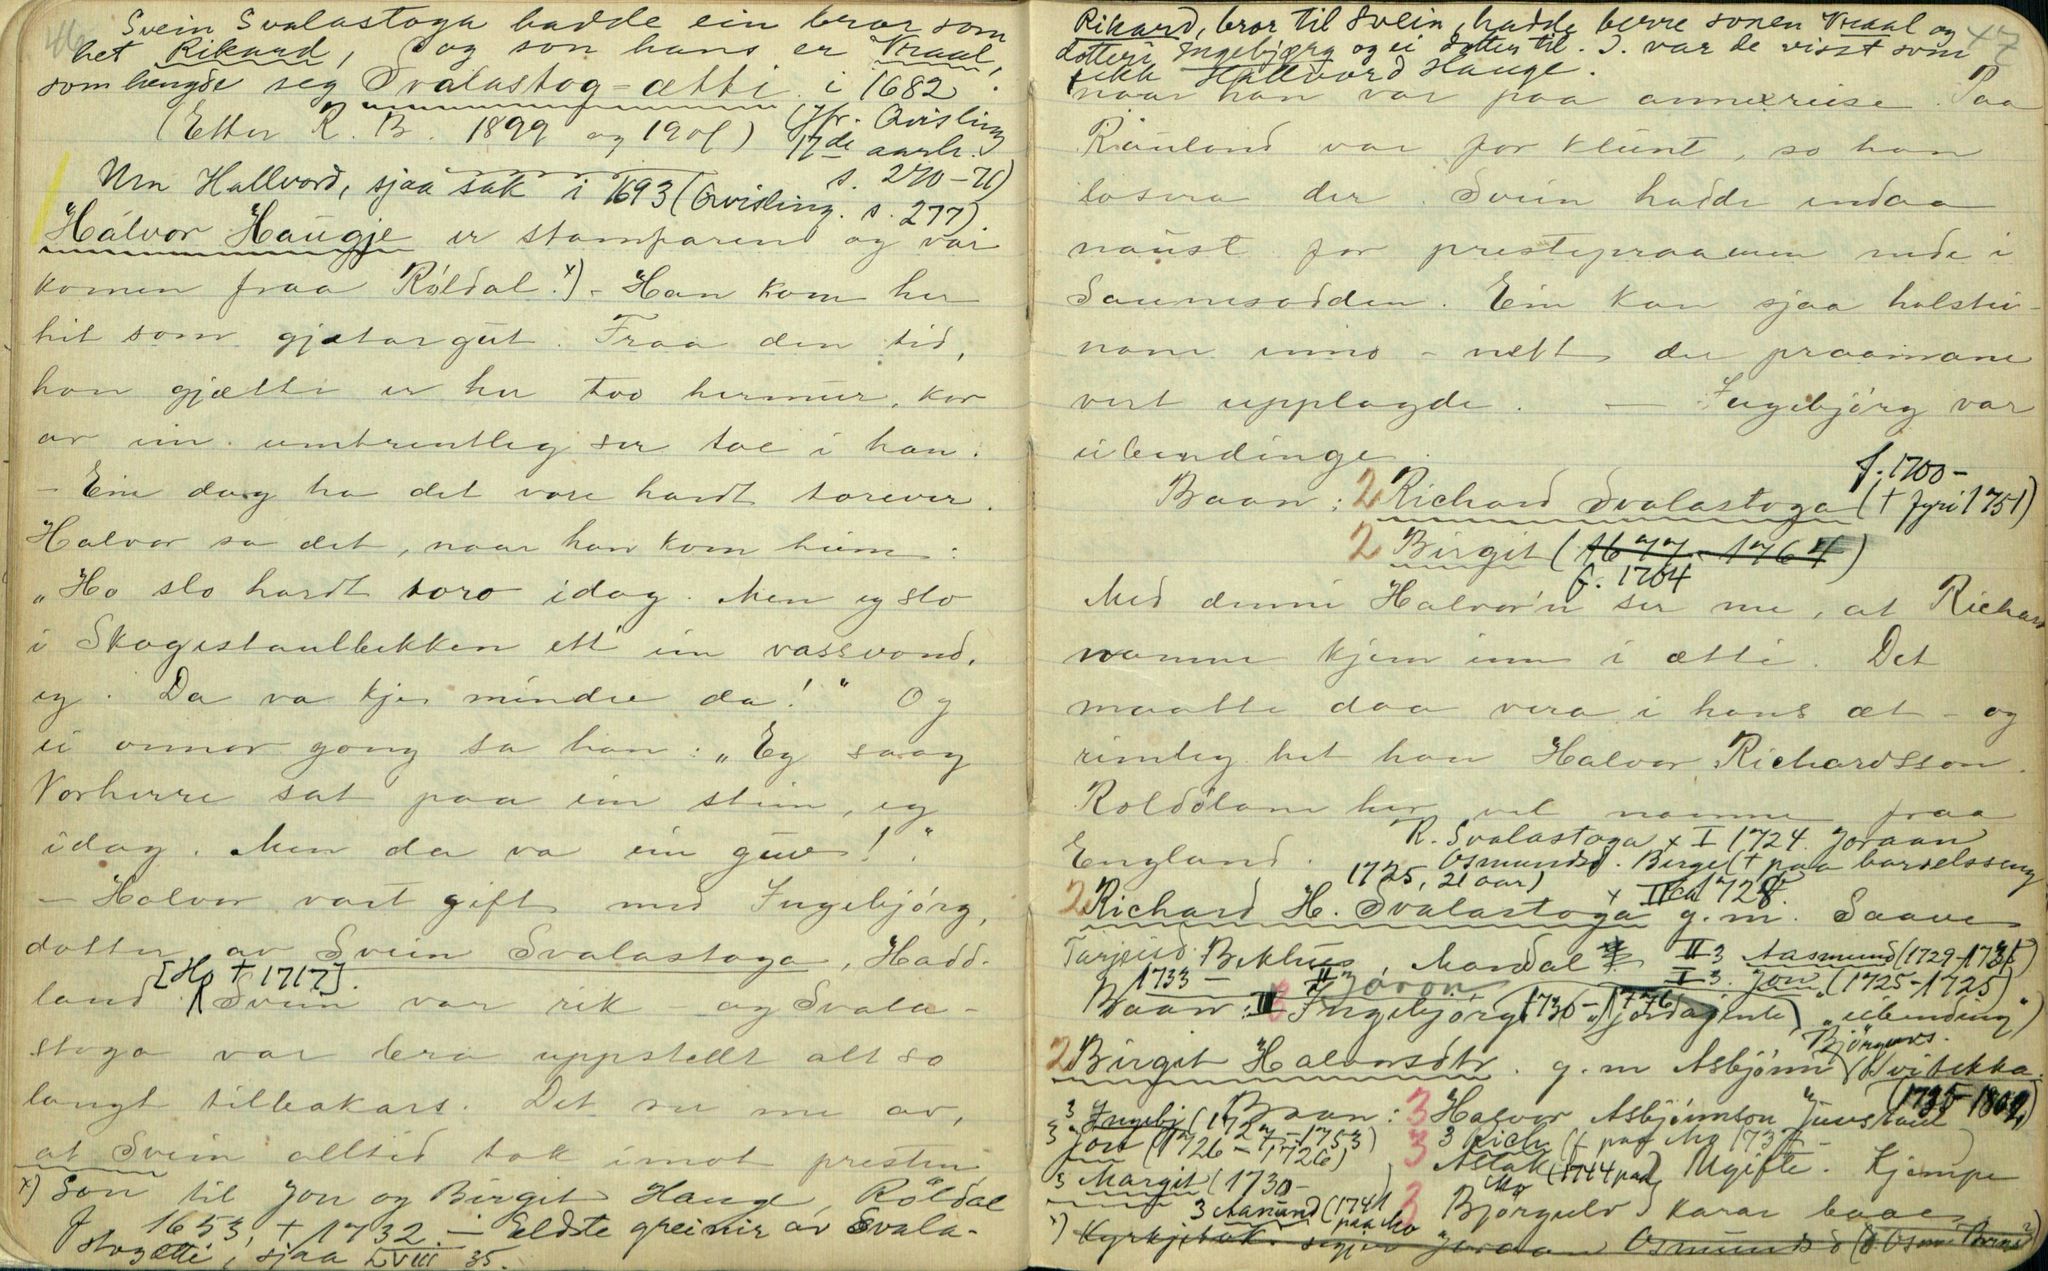 46
Svein Svalastoga hadde ein bror som
het Rikard, og son hans er Vraal,
som hengde seg Svalastog-ætti i 1682.
(Etter R. B. 1899 og 190 ) (Jfr. Qvisling
17de aarh.
s. 270-71)
Um Hallvord, sjaa sak i 1693 (Qvisling. s. 277)
Halvor Haugje er stamfaren og var
komen fraa Röldal x) - Han kom her
hit som gjætargut. Fraa den tid,
han gjætte er her too hermur, kor
av ein umtrentleg ser tae i han:
- Ein dag ha det vore hardt torever.
Halvor sa det, naar han kom heim:
"Ho slo hardt toro idag. Men eg slo
i Skogestaulbekken ett ein vassvond,
eg. Da va kje mindre da!" Og
ei onnor gong sa han: "Eg saag
Vorherre sat paa ein stein, eg
idag. Men da va ein guv!"
- Halvor vart gift med Ingebjörg,
dotter av Svein Svalastoga, Hadd-
[Ho † 1717].
land. Svein var rik - og Svala-
stoga var bra uppstellt alt so
langt tilbakars. Det ser me av,
at Svein alltid tok imot presten,
x) Son til Jon og Birgit Hauge, Röldal
f 1653, † 1732. - Eldste greinir av Svala-
stogætti, sjaa LVIII 35.
47
Rikard, bror til Svein, hadde berre sonen Vraal og
dotteri Ingebjørg og ei dotter til. I. var de visst som
fekk Hallvord Hauge.
naar han var paa annexreise. Paa
Rauland var for klunt, so han
losera der. Svein hadde endaa
naust for prestepraamen nede i
Saumsodden. Ein kan sjaa holstei-
nane enno - nett der praamane
vert upplagde. — Ingebjörg var
eibendinge.
Baan: 2 Richard Svalastoga (f. 1700 - † fyri 1751)
2 Birgit (1677 - 1764)
f. 1704
Med denne Halvor'n ser me, at Richard
namne kjem inn i ætti. Det
maatte daa vera i hans æt - og
rimeleg het han Halvor Richardsson.
Roldölane her vel namne fraa
England.
R. Svalastoga x I 1724. Joraan
Osmundsd. Berge († paa barselsseng
1725, 21 aar)
x II ca 1728.
2 Richard H. Svalastoga g.m. Saave
Tarjeisd. Beklius, Mandal II 3 Aasmund (1729-1735)
I 3. Jon (1725-1725)
1733 - II 3 Joron
Baan: III 3 Ingebjörg (1736-1776) "eibending")
Björguvs.
2 Birgit Halvorsdtr. g.m Asbjönn Kvitekka.
(1735-1809)
Baan: 3 Halvor Asbjönnson Juvstaul
3 Ingebj (1727-1753)
3 Jon (1726-1726)
3 Rich († paa Mo 173 -
3 Aslak (1744 paa Mo) Ugifte. Kjempe
3 Margit (1730-
3 Aanund (1741 paa Mo
3 Björgulv karar baae.
x) Kyrkjebok. segjer Joraan Osmundsd